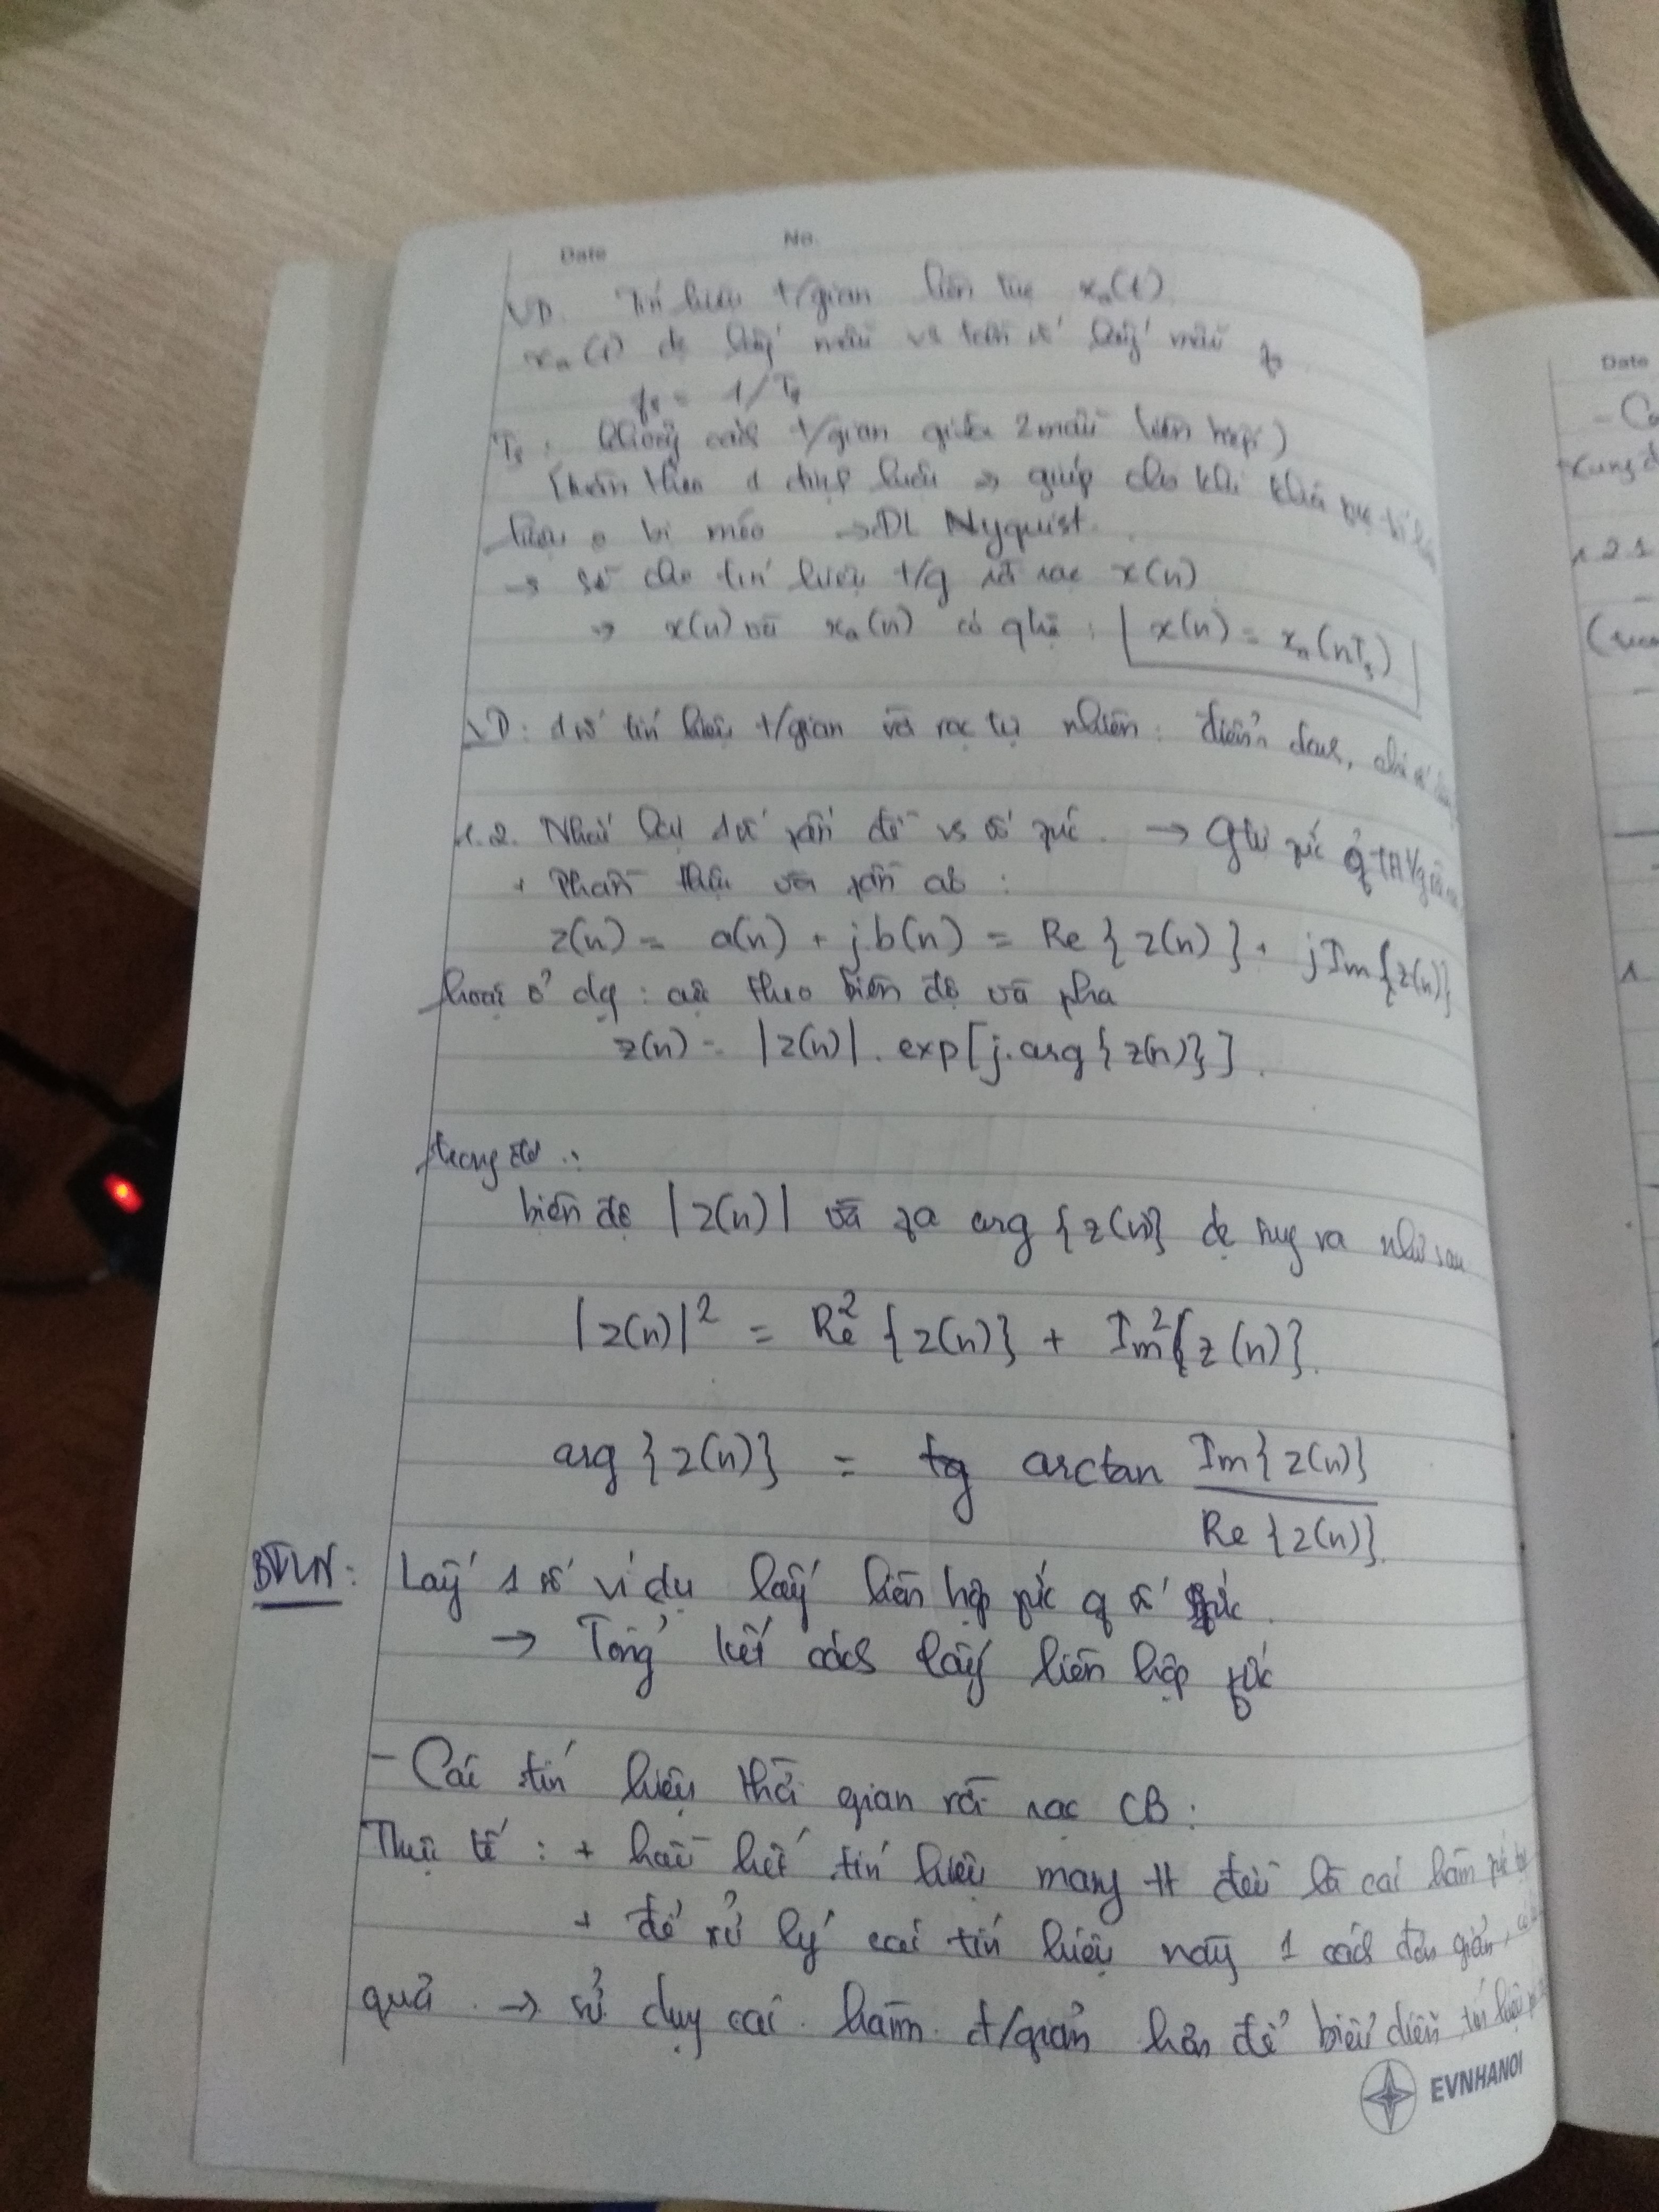 Date No.
VD. Tín hiệu t/gian liên tục xₐ(t)
xₐ(t) đc lấy mẫu vs tần số lấy mẫu fs
fs = 1/Ts
Ts: khoảng cách t/gian giữa 2 mẫu liên tiếp)
tuân theo 1 định luật → giúp cho khi
hiệu o bị méo → ĐL Nyquist.
→ sẽ cho tín hiệu t/g rời rạc x(n)
→ x(n) và xₐ(n) có qhệ: x(n) = xₐ(nTs)
VD: 1 số tín hiệu t/gian rời rạc tự nhiên: điểm danh, chỉ số
1.2. Nhắc lại 1 số vấn đề vs số phức. → Gtrị phức
+ Phần thực và phần ảo:
z(n) = a(n) + j.b(n) = Re{z(n)} + jIm{z(n)}
hoặc ở dạng: cực theo biên độ và pha
z(n) = |z(n)|.exp[j.arg{z(n)}].
trong đó:
biên độ |z(n)| và pha arg{z(n)} đc suy ra như sau
|z(n)|² = Re²{z(n)} + Im²{z(n)}.
arg{z(n)} = tg arctan Im{z(n)}
Re{z(n)}.
BTVN: Lấy 1 số ví dụ lấy liên hợp phức q số phức.
→ Tổng kết cách lấy liên hợp phức
- Các tín hiệu thời gian rời rạc CB:
Thực tế: + hầu hết tín hiệu mang tt đều là các hàm phức tạp
+ để xử lý các tín hiệu này 1 cách đơn giản,
quả → sử dụng các hàm đ/giản hơn để biểu diễn tín hiệu
EVNHANOI
Date
1.2.1